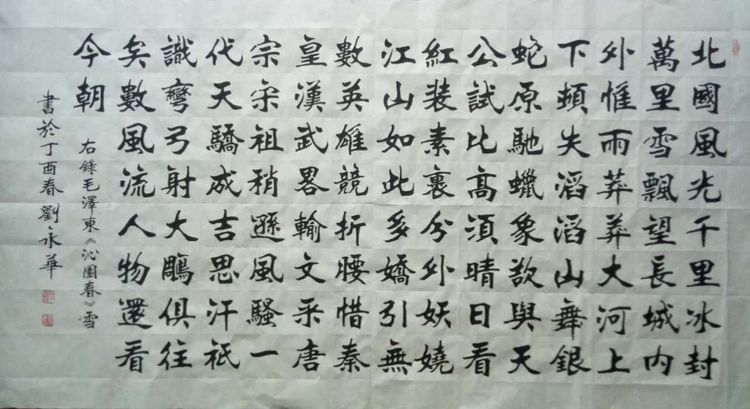 北國風光千里冰封
萬里雪飄望長城内
外惟雨莽莽大河上
下頓失滔滔山舞銀
蛇原馳蠟象欲與天
公試比高須晴日看
紅装素裹分外妖嬈
江山如此多嬌引無
數英雄競折腰惜秦
皇漢武畧輸文采唐
宗宋祖稍遜風騷一
代天驕成吉思汗衹
識彎弓射大鵰俱往
矣數風流人物還看
今朝
右錄毛澤東《沁園春》雪
書於丁酉春劉永華